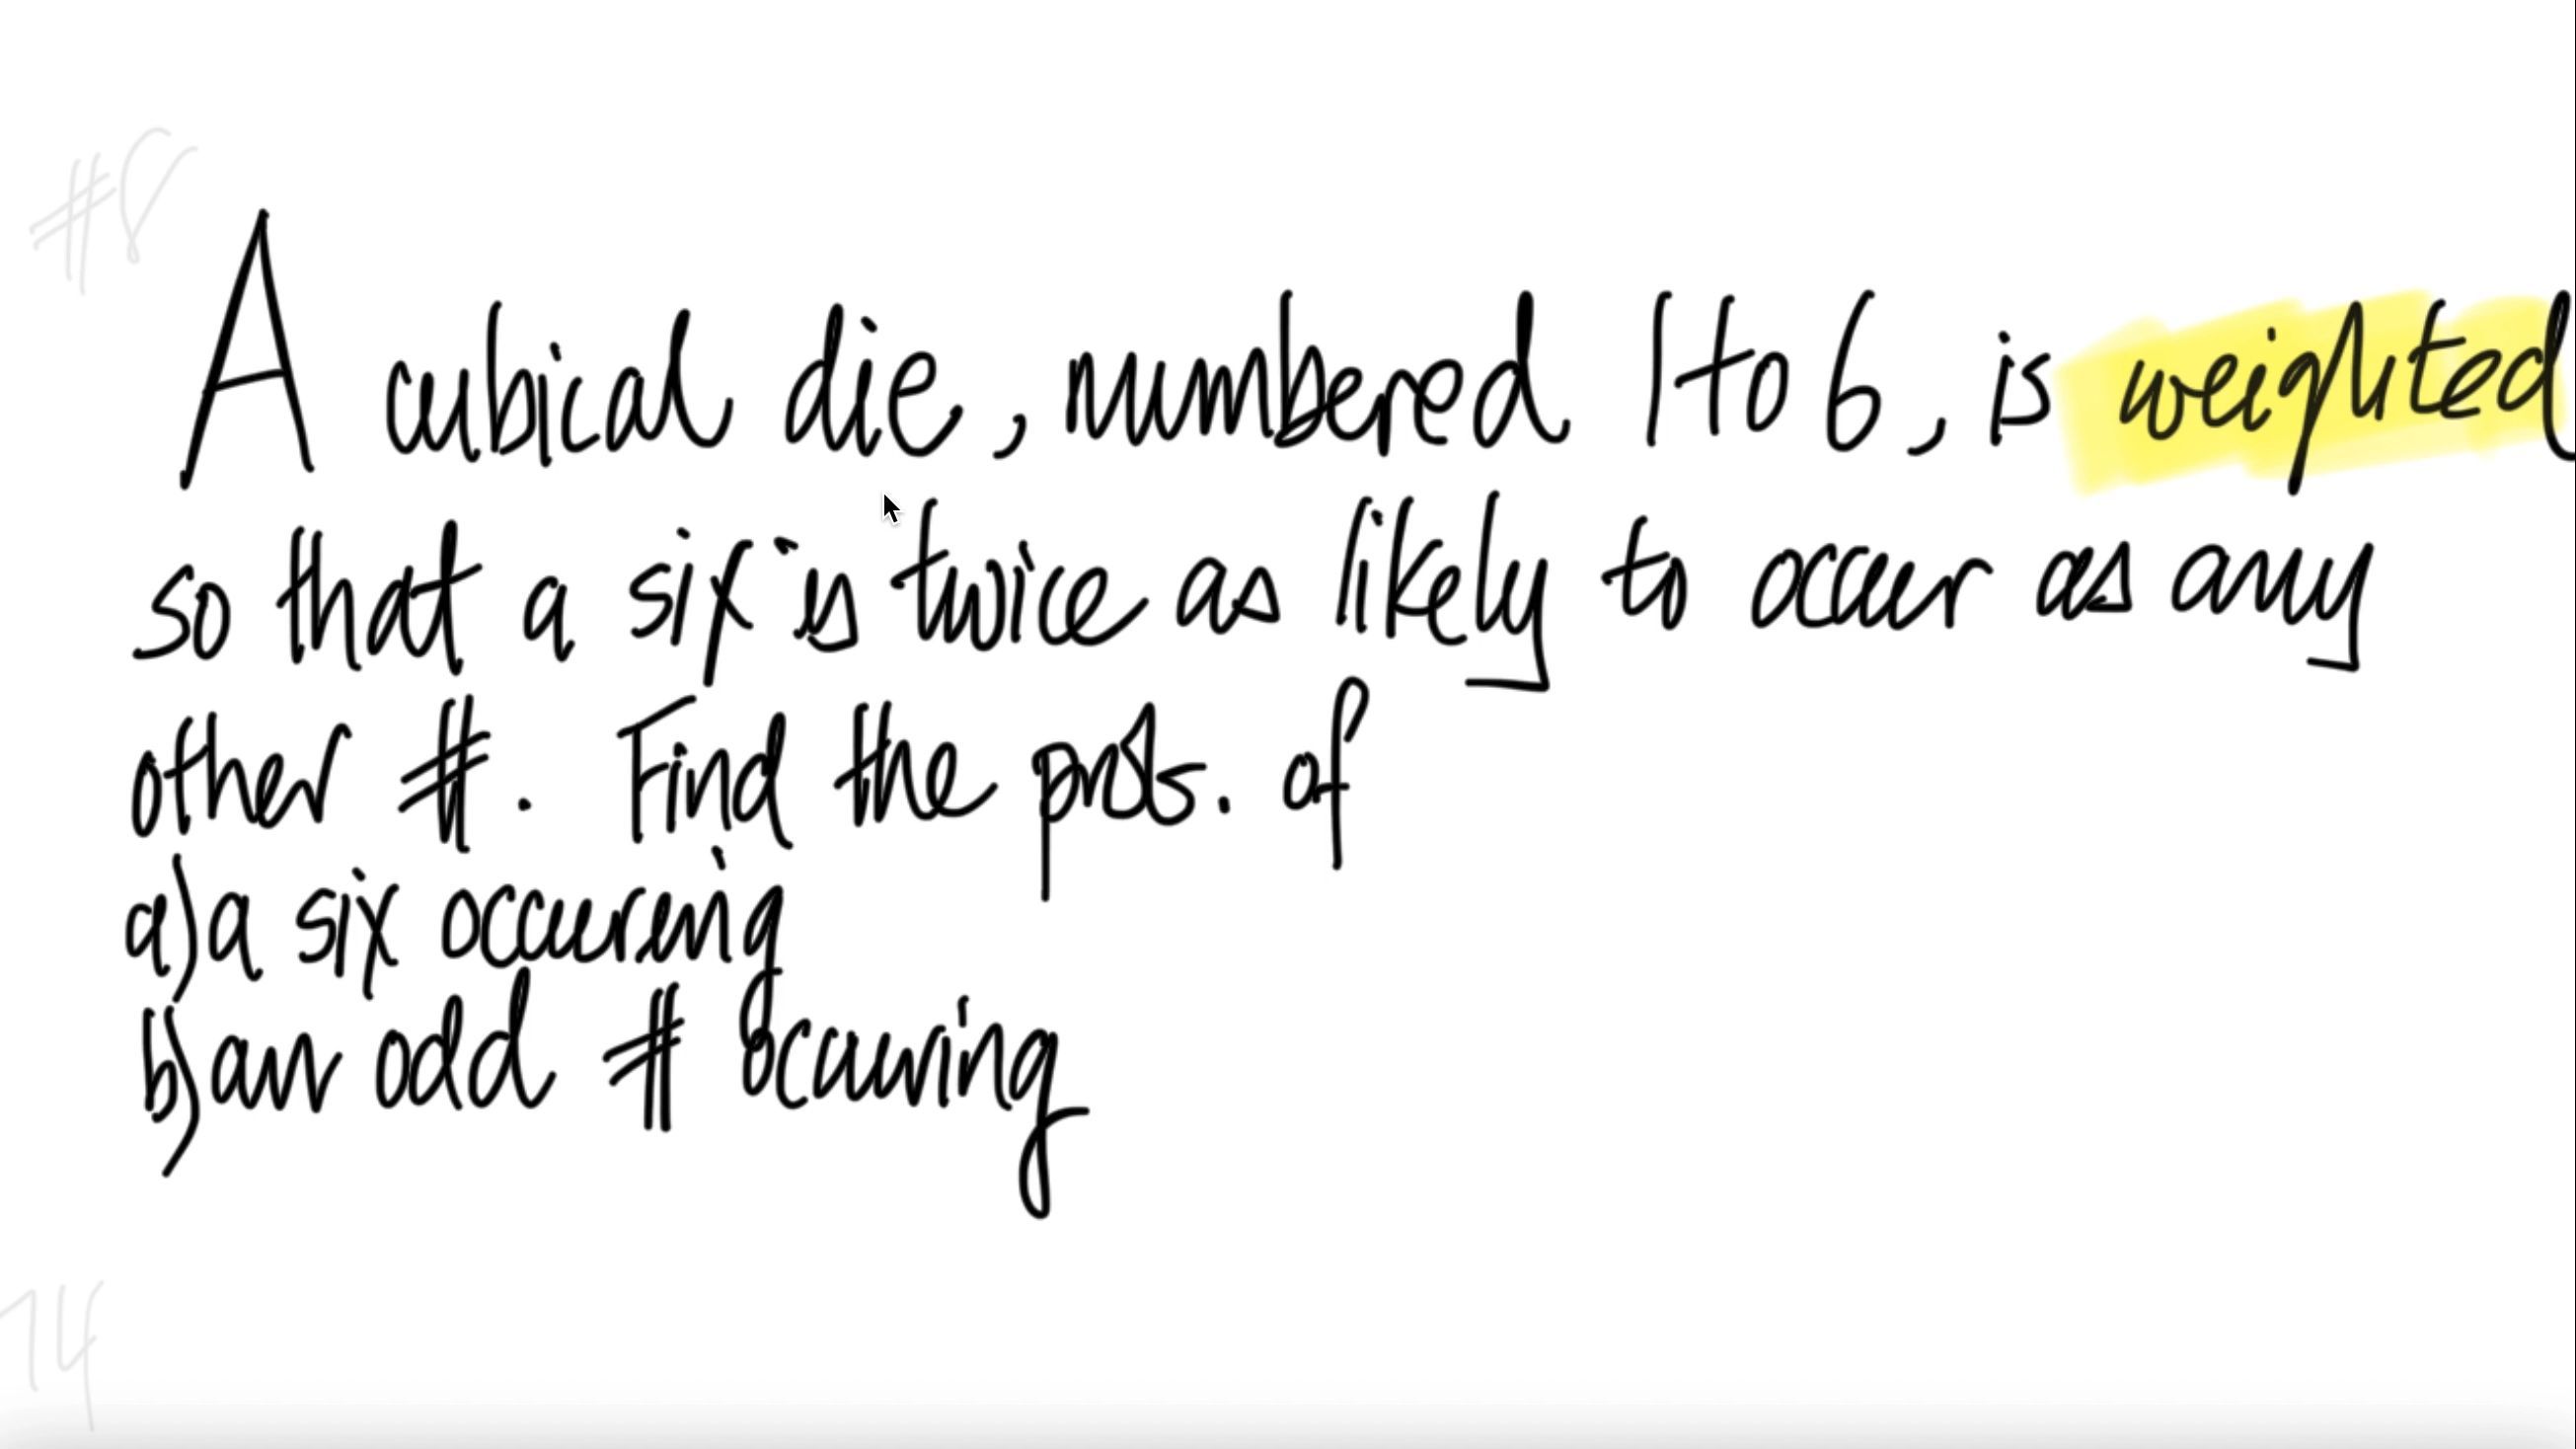 #8
A cubical die, numbered 1 to 6, is weighted
so that a six is twice as likely to occur as any
other #. Find the prob. of
a) a six occurring
b) an odd # occurring
14